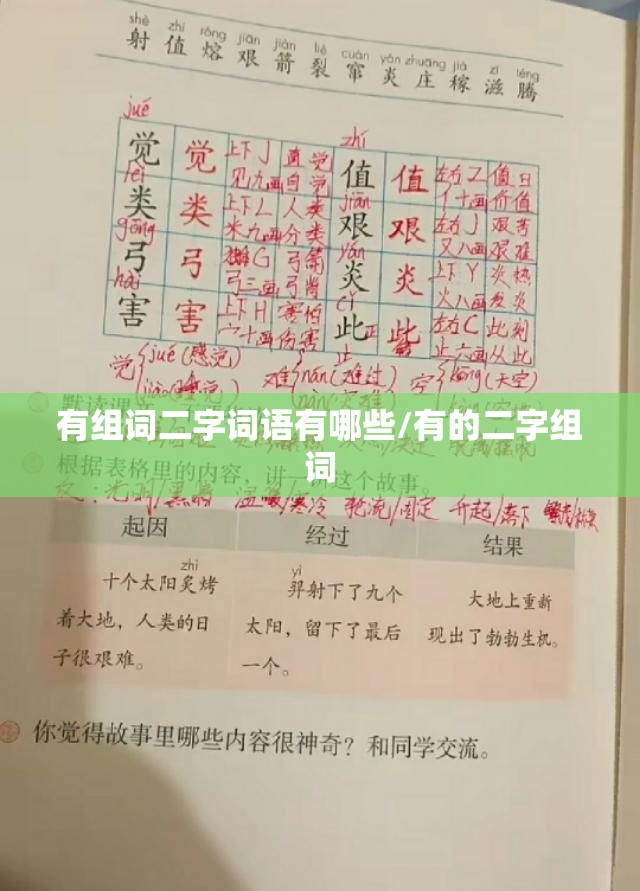 shè zhí róng jiān jiàn liè cuàn yán zhuāng jià zī téng
射 值 熔 艰 箭 裂 窜 炎 庄 稼 滋 腾
jué zhí
觉 觉 上下 J 直觉 值 值 左右 Z 值日
见 九画 自觉 亻 十画 价值
lèi jiān
类 类 上下 L 人类 艰 艰 左右 J 艰苦
米 九画 分类 又 八画 艰难
gōng yán
弓 弓 G 弓箭 炎 炎 上下 Y 炎热
弓 三画 火 八画 发炎
hài cǐ
害 害 上下 H 害怕 此 此 左右 C 此刻
宀 十画 伤害 止 六画 从此
觉 jué(感觉) 难 nán(难过) 空 kōng(天空)
默读课文
有组词二字词语有哪些/有的二字组
词
根据表格里的内容，讲一讲这个故事。
反：光明/黑暗 温暖/寒冷 轮流/固定 升起/落下
起因 经过 结果
zhì yì
十个太阳炙烤 羿射下了九个 大地上重新
着大地，人类的日 太阳，留下了最后 现出了勃勃生机。
子很艰难。 一个。
你觉得故事里哪些内容很神奇？和同学交流。